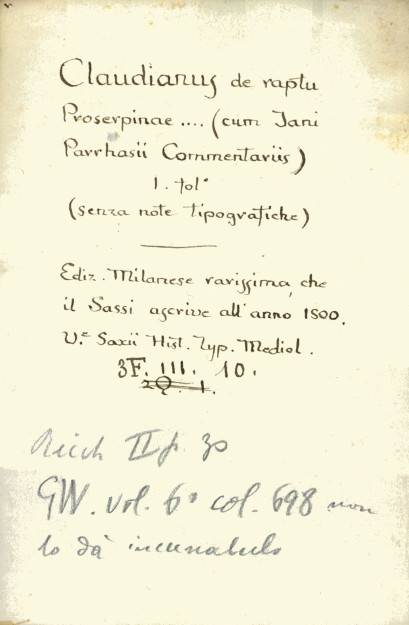 Claudianus de raptu
Proserpinae .... (cum Jani
Parrhasii Commentariis)
1. fol°
(senza note tipografiche)
Ediz. Milanese rarissima, che
il Sassi ascrive all' anno 1500.
V.e Saxii Hist. Typ. Mediol.
3F. III. 10.
2Q. 1.
Reich II p. 30
GW. vol. 6° col. 698 non
lo dà incunabulo